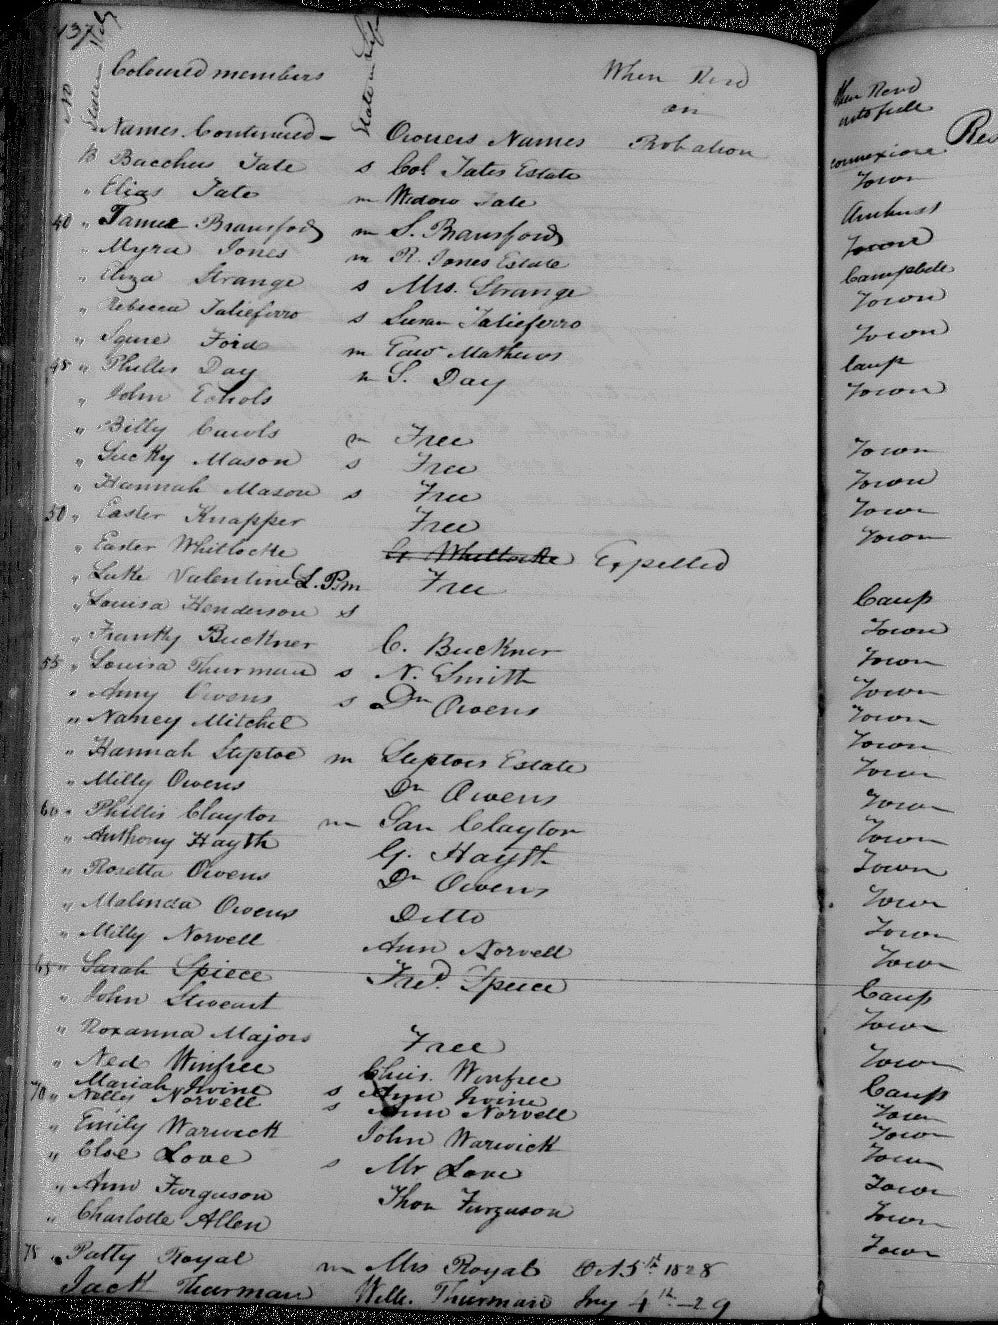 137
No
State in Life
Coloured members
When Recd
on
Names Continued - Owners Names Probation
When Recd
into full
connexion
B Bacchus Tate s Col Tates Estate Town
" Elias Tate m Widow Tate Amhust
40 " James Bransford m S. Bransford Town
" Myra Jones m R. Jones Estate Campbele
" Eliza Strange s Mrs. Strange Town
" Rebecca Talieferro s Susan Talieferro Town
" Squre Ford m Edwd Mathews Camp
45 " Phillis Day m S. Day Town
" John Echols
" Billy Cawls m Free Town
" Lucky Mason s Free Town
" Hannah Mason s Free Town
50 " Easter Knapper Free Town
" Easter Whitlocke G. Whitlocke Expelled
" Luke Valentine L. P. m Free Camp
" Louisa Henderson s Town
" Franky Buckner C. Buckner Town
55 " Louisa Thurman s N. Smith Town
" Amy Owens s Dr Owens Town
" Nancy Mitchel Town
" Hannah Steptoe m Steptoes Estate Town
" Milly Owens Dr Owens Town
60 " Phillis Claytor m Sam Claytor Town
" Anthony Hayth G. Hayth Town
" Rosetta Owens Dr Owens Town
" Malinda Owens Ditto Town
" Milly Norvell Ann Norvell Town
65 " Sarah Spiece Fred. Speice Camp
" John Stweart Town
" Roxanna Majors Free Town
" Ned Winfree Chris. Winfree Camp
Mariah Irvine s Ann Irvine Town
70 " Nelly Norvell s Ann Norvell Town
" Emily Warwick John Warwick Town
" Cloe Love s Mr Love Town
" Ann Furguson Thos Furguson Town
" Charlotte Allen Town
75 " Patty Royal m Mrs Royal Oct 5th 1828
Jack Thurman Wille. Thurman Jny 4th - 29